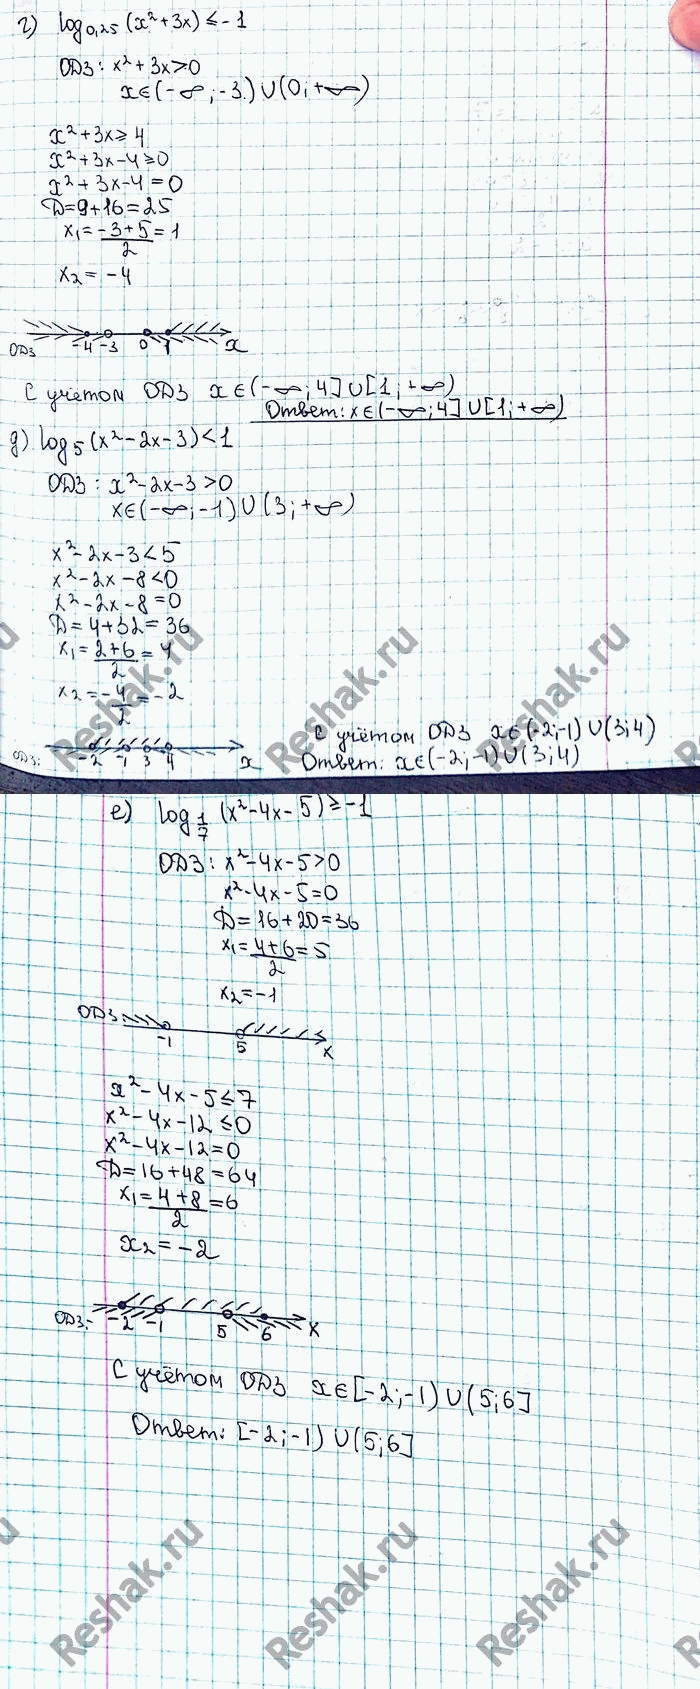 г) log₀,₂₅ (x² + 3x) ≤ -1
ОДЗ: x² + 3x > 0
x ∈ (-∞; -3) ∪ (0; +∞)
x² + 3x ≥ 4
x² + 3x - 4 ≥ 0
x² + 3x - 4 = 0
D = 9 + 16 = 25
x₁ = (-3 + 5)/2 = 1
x₂ = -4
ОДЗ -4 -3 0 1 x
С учётом ОДЗ x ∈ (-∞; 4] ∪ [1; +∞)
Ответ: x ∈ (-∞; 4] ∪ [1; +∞)
д) log₅ (x² - 2x - 3) < 1
ОДЗ: x² - 2x - 3 > 0
x ∈ (-∞; -1) ∪ (3; +∞)
x² - 2x - 3 < 5
x² - 2x - 8 < 0
x² - 2x - 8 = 0
D = 4 + 32 = 36
x₁ = (2 + 6)/2 = 4
x₂ = -4/2 = -2
ОДЗ: -2 -1 3 4 x
С учётом ОДЗ x ∈ (-2; -1) ∪ (3; 4)
Ответ: x ∈ (-2; -1) ∪ (3; 4)
Reshak.ru Reshak.ru Reshak.ru
е) log₁/₇ (x² - 4x - 5) ≥ -1
ОДЗ: x² - 4x - 5 > 0
x² - 4x - 5 = 0
D = 16 + 20 = 36
x₁ = (4 + 6)/2 = 5
x₂ = -1
ОДЗ -1 5 x
x² - 4x - 5 ≤ 7
x² - 4x - 12 ≤ 0
x² - 4x - 12 = 0
D = 16 + 48 = 64
x₁ = (4 + 8)/2 = 6
x₂ = -2
ОДЗ: -2 -1 5 6 x
С учётом ОДЗ x ∈ [-2; -1) ∪ (5; 6]
Ответ: [-2; -1) ∪ (5; 6]
Reshak.ru Reshak.ru Reshak.ru